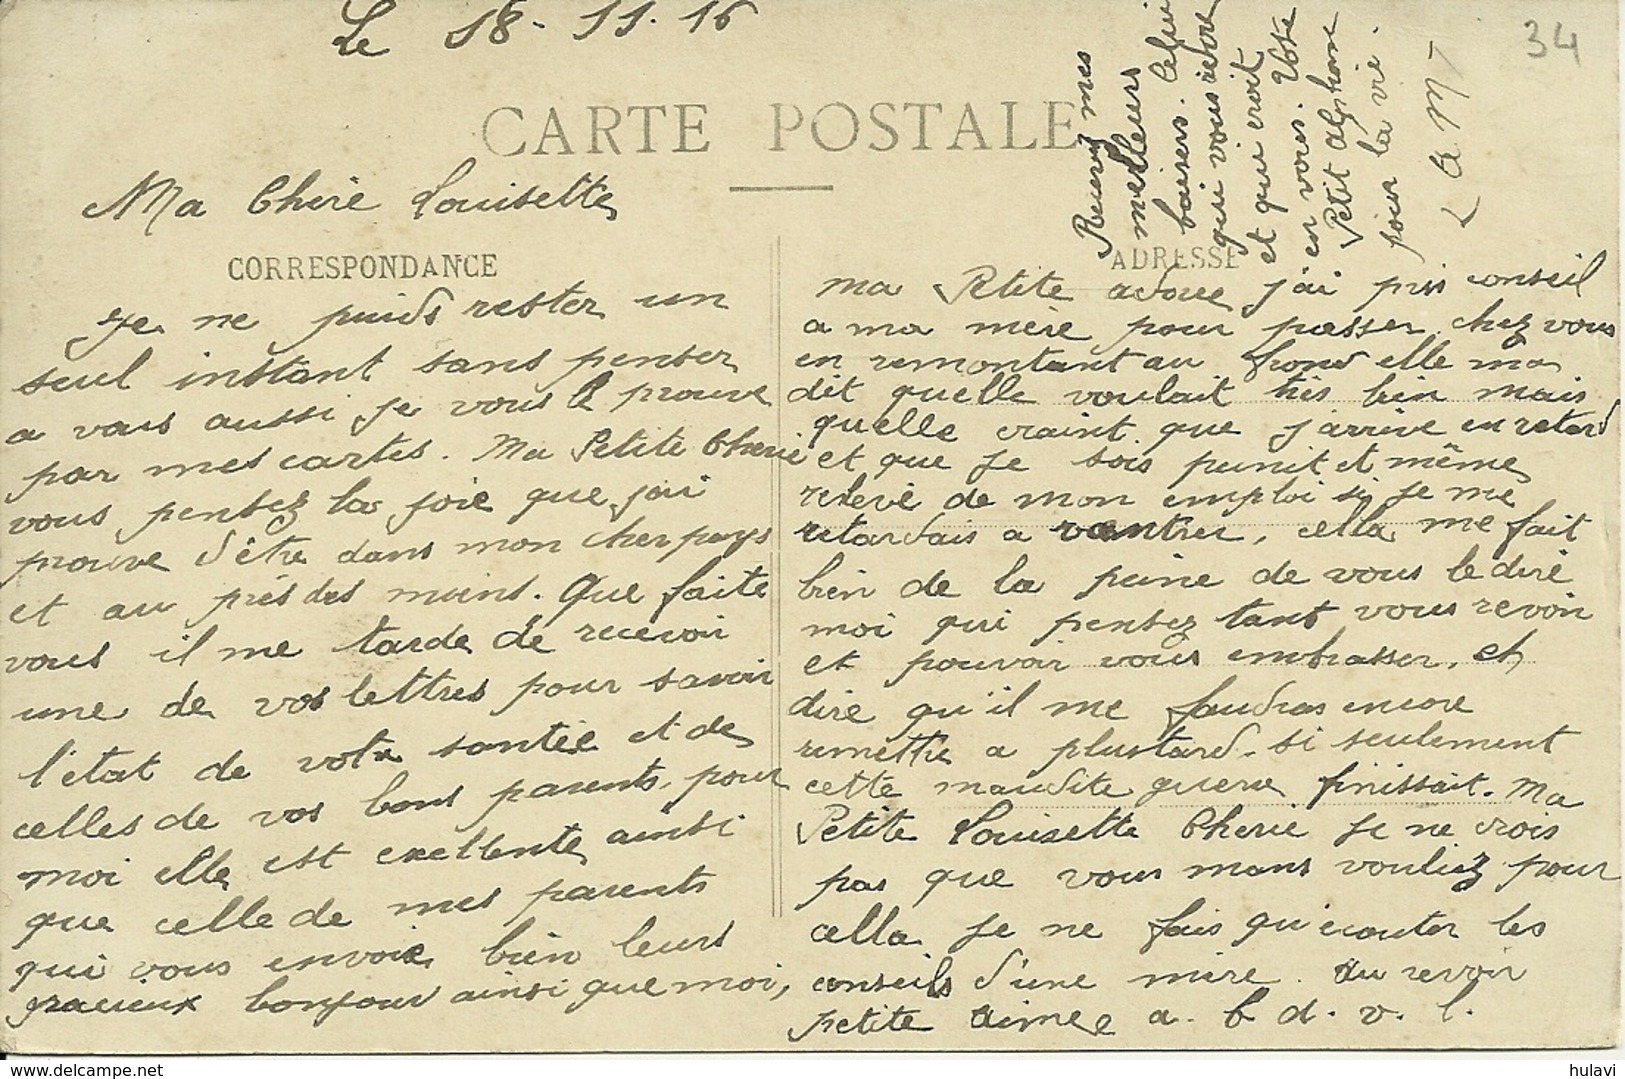 Le 18-11.16
34
CARTE POSTALE
Ma Chere Louisette
CORRESPONDANCE
Je ne puids rester un
seul instant sans penser
a vous aussi je vous le prouve
par mes cartes. Ma Petite Cherie
vous pensez la joie que jai
prouve d'être dans mon cher pays
et au près des miens. Que faite
vous il me tarde de recevoir
une de vos lettres pour savoir
l'état de votre santée et de
celles de vos bons parents, pour
moi elle est exellente ainsi
que celle de mes parents
qui vous envoie bien leurs
gracieux bonjour ainsi que moi,
ADRESSE
ma Petite adorée j'ai pris conseil
a ma mère pour passer chez vous
en remontant au frond elle ma
dit quelle voulait très bien mais
quelle craint que j'arrive en retard
et que je sois punit et même
relevé de mon emploi si je me
retardais a rentrer, cella me fait
bien de la peine de vous le dire
moi qui pensez tant vous revoir
et pouvoir vous embrasser, et
dire qu'il me faudras encore
remettre a plustard. si seulement
cette maudite guerre finissait. Ma
Petite Louisette Cherie je ne crois
pas que vous mans vouliez pour
cella je ne fais qu'ecouter les
conseils d'une mère. Au revoir
petite aimee a. b. d. v. l.
Recevez mes
meilleurs
baisers. Celui
qui vous adore
et qui croit
en vous. Votre
Petit Alphonse
pour la vie.
< a M >
hulavi